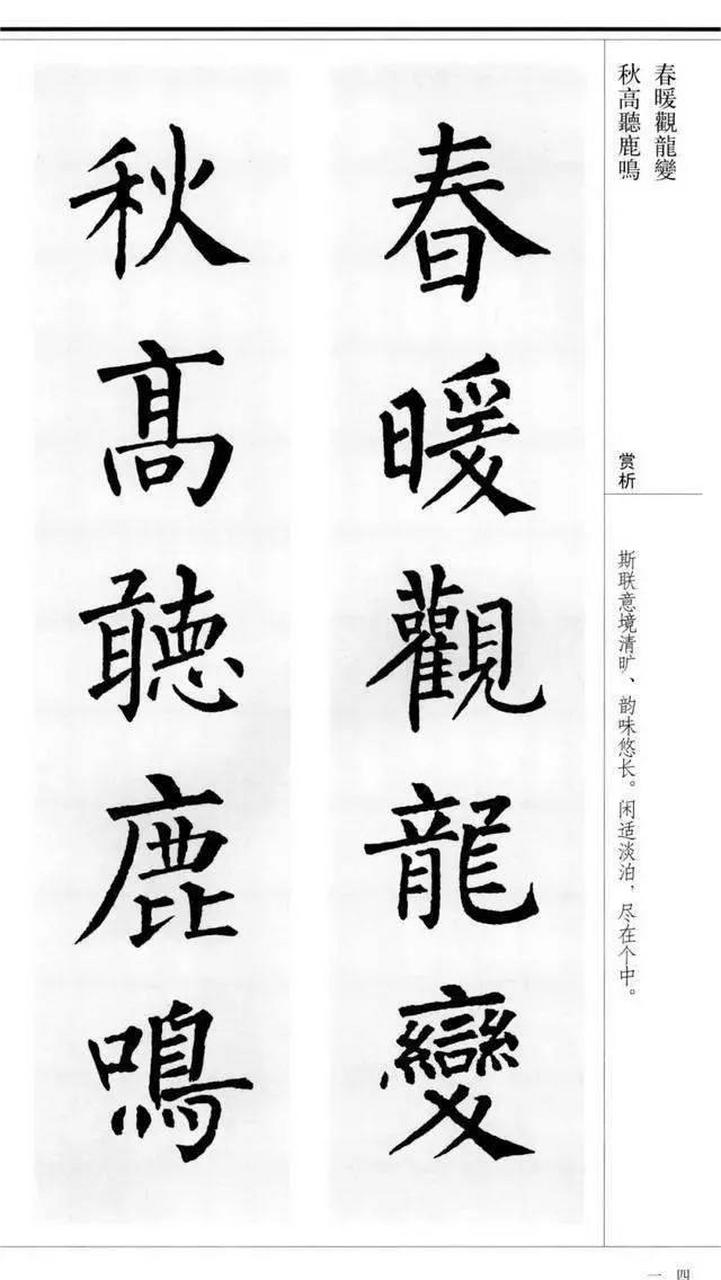 春暖觀龍變
秋高聽鹿鳴
赏析
斯联意境清旷、韵味悠长。闲适淡泊，尽在个中。
春暖觀龍變
秋髙聽鹿鳴
一四